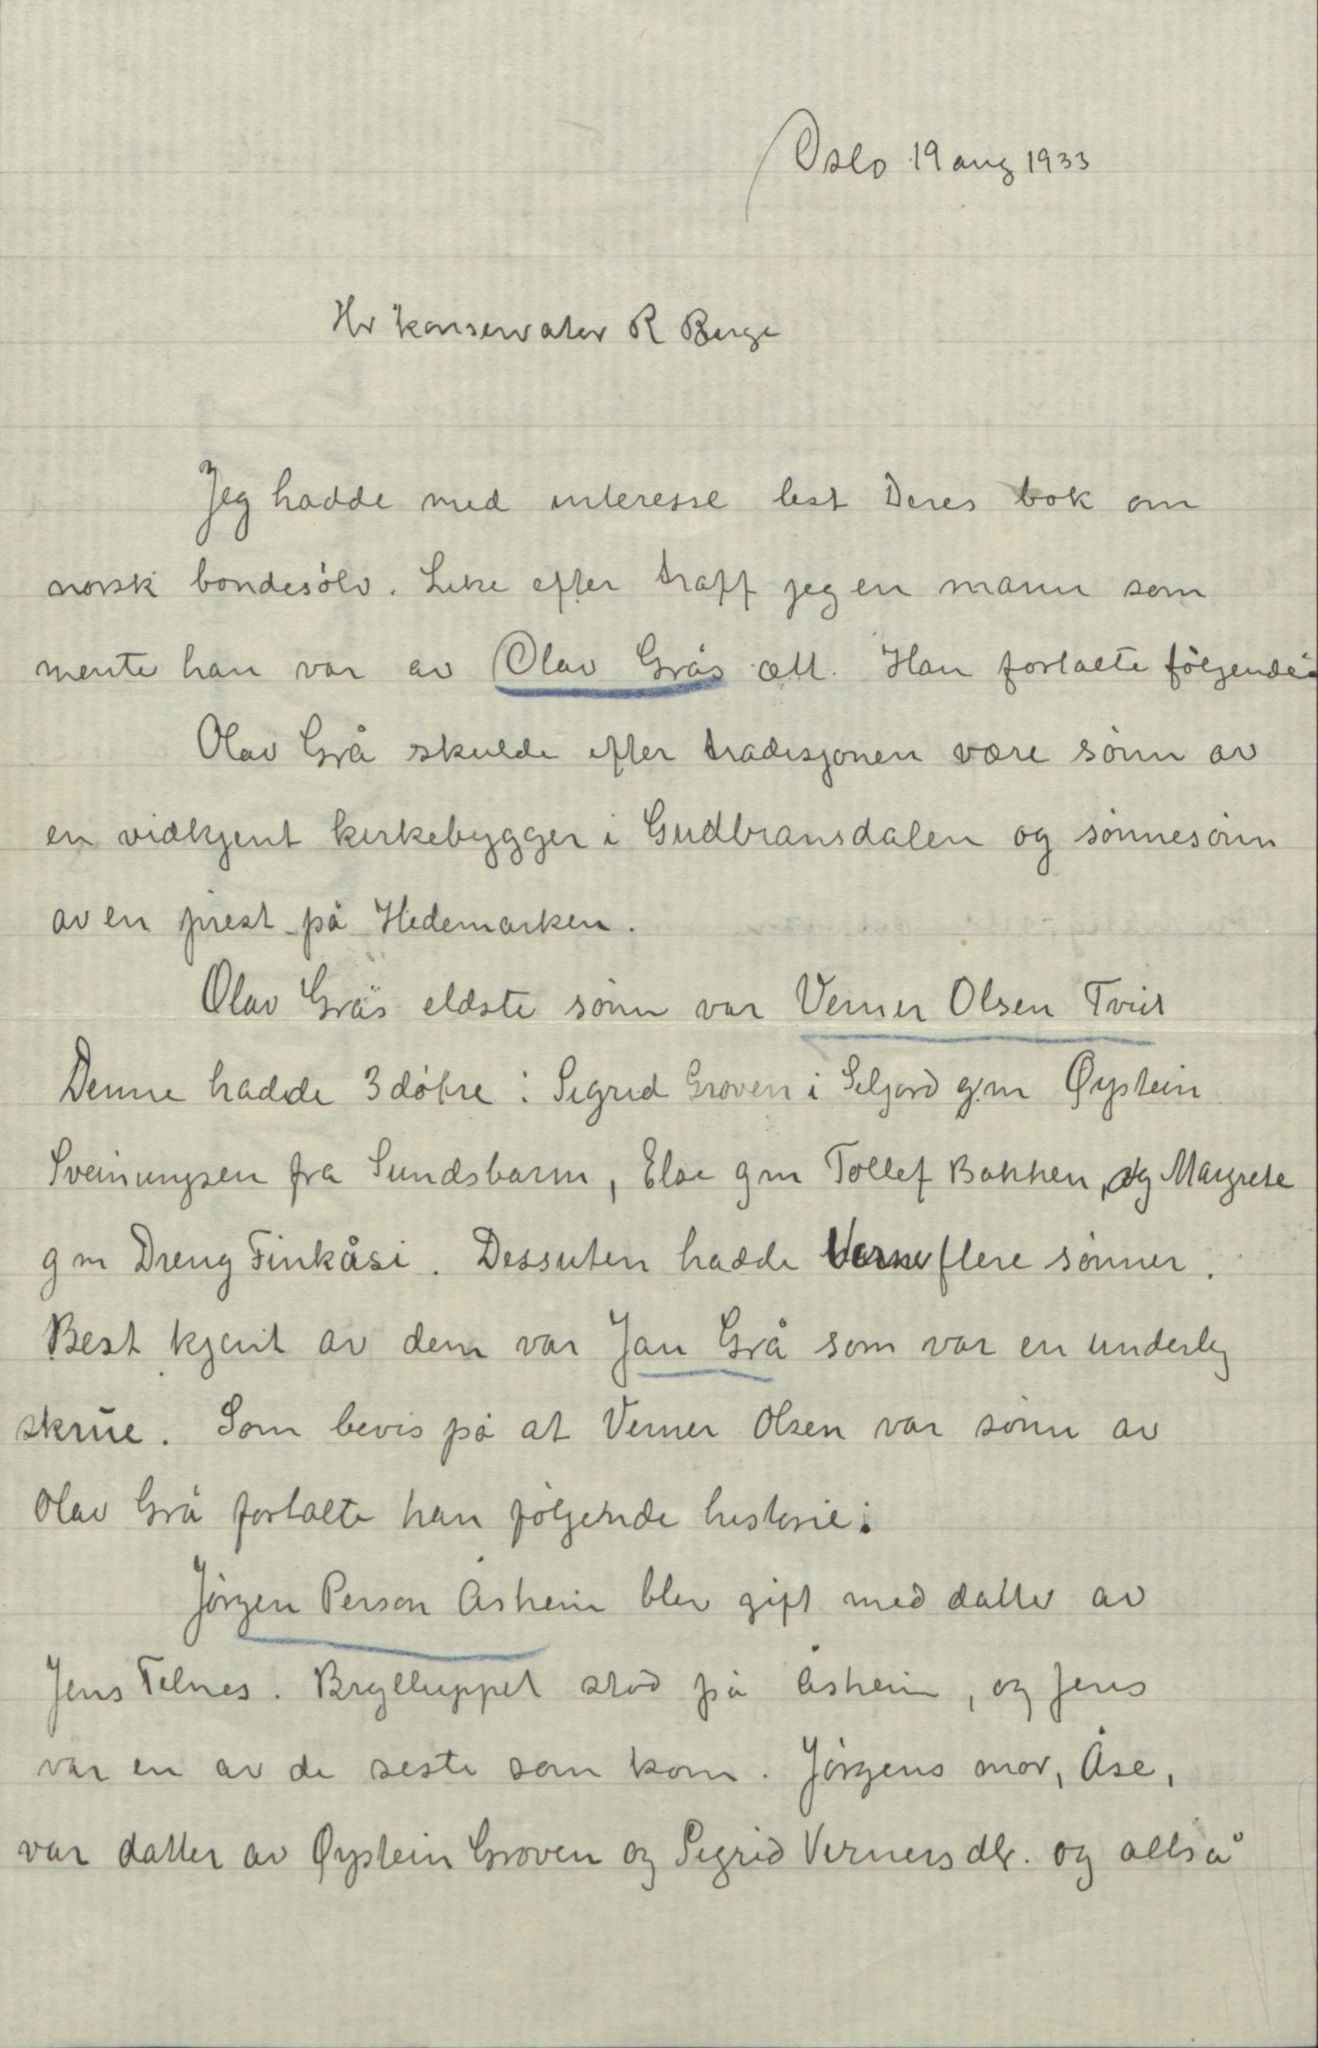 Oslo 19 aug 1933
Hr konservator R Berge
Jeg hadde med interesse lest Deres bok om
norsk bondesölv. Like efter traff jeg en mann som
mente han var av Olav Grås ætt. Han fortalte fölgende:
Olav Grå skulde efter tradisjonen være sönn av
en vidkjent kirkebygger i Gudbransdalen og sönnesönn
av en prest på Hedemarken.
Olav Grås eldste sönn var Verner Olsen Tveit
Denne hadde 3 dötre: Sigrid Groven i Seljord g.m Øystein
Sveinungsen fra Sundsbarm, Else g m Tollef Bakken, og Margrete
g m Dreng Finkåsi. Dessuten hadde Verner flere sönner.
Best kjent av dem var Jan Grå som var en underlig
skrue. Som bevis på at Verner Olsen var sönn av
Olav Grå fortalte han fölgende historie:
Jörgen Person Åsheim blev gift med datter av
Jens Telnes. Brylluppet stod på Åsheim, og Jens
var en av de siste som kom. Jörgens mor, Åse,
var datter av Øystein Groven og Sigrid Vernersdtr. og altså